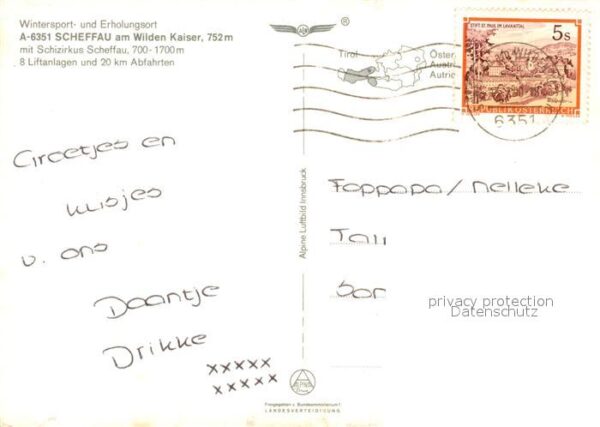 Wintersport- und Erholungsort
A-6351 SCHEFFAU am Wilden Kaiser, 752 m
mit Schizirkus Scheffau, 700-1700 m
8 Liftanlagen und 20 km Abfahrten
®
Tirol
Öster
Austri
Autric
STIFT ST. PAUL IM LAVANTTAL
5s
REPUBLIK ÖSTERREICH
6351
Groetjes en
kusjes
v. ons
Daantje
Drikke
xxxxx
xxxxx
Alpine Luftbild Innsbruck
Foppapa/Nelleke
privacy protection
Datenschutz
ALPINE
Freigegeben v. Bundesministerium f.
LANDESVERTEIDIGUNG